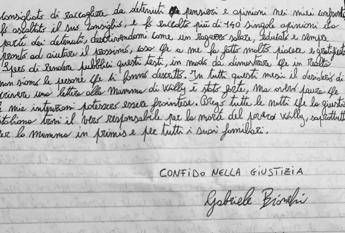 consigliato di raccogliere da detenuti pensieri e opinioni nei miei confronti
Ho ascoltato il suo consiglio, e ho raccolto più di 140 singole opinioni da
parte dei detenuti, descrivendomi come, un ragazzo solare, educato e sempre
pronto ad aiutare il prossimo, cosa che a me ha fatto molto piacere e
Spero di rendere pubblici questi testi, in modo da dimostrare che in realtà
non siamo le persone che ci hanno descritto. In tutti questi mesi il desiderio di
scrivere una lettera alla Mamma di Willy è stato forte, ma avevo paura che
le mie intenzioni potessero essere fraintese. Prego tutte le notti che la giustizia
italiana trovi il vero responsabile per la morte del povero Willy, soprattutto
per la mamma in primis e per tutti i suoi familiari.
CONFIDO NELLA GIUSTIZIA
Gabriele Bianchi